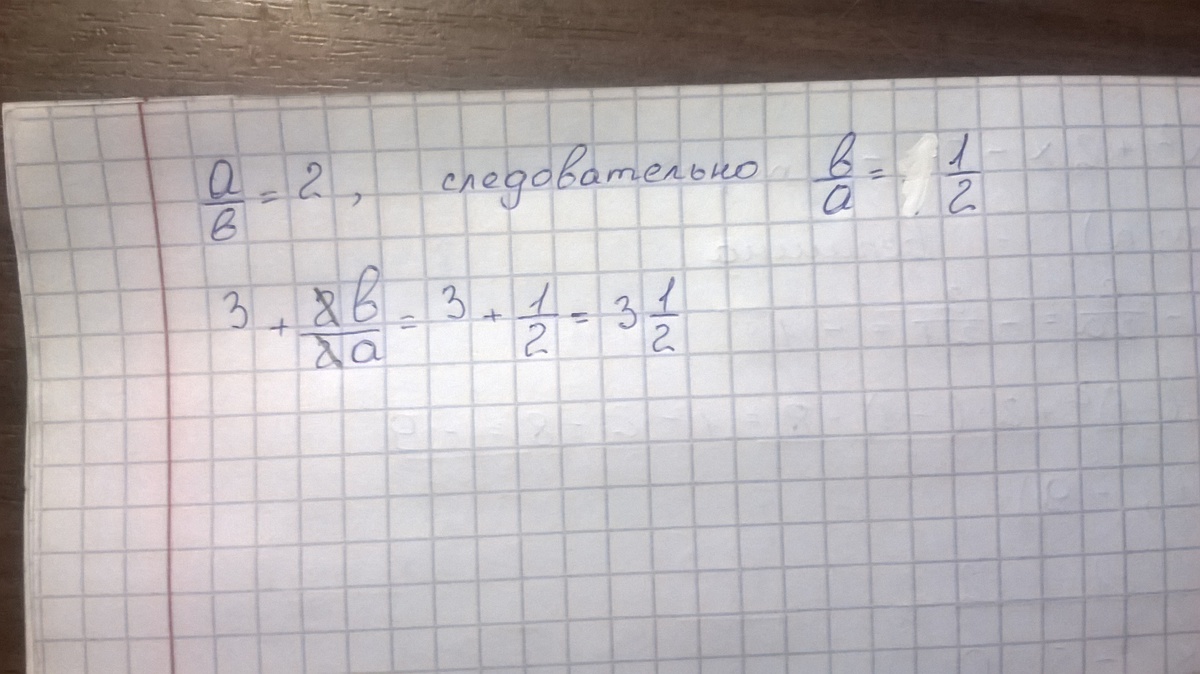 a/b = 2, следовательно b/a = 1/2
3 + 2b/2a = 3 + 1/2 = 3 1/2